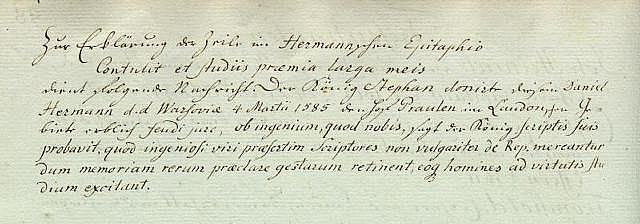 Zur Erklärung der Zeile im Hermannschen Epitaphio
Contulit et studiis præmia larga meis
dient folgende Nachricht. Der König Stephan donirte diesem Daniel
Hermann d.d. Warsoviæ 4 Martii 1585 den Hof Praulen im Laudonschen Ge-
biete erblich feudi jure, ob ingenium, quod nobis, sagt der König, scriptis suis
probavit, quod ingeniosi viri præsertim Scriptores non vulgariter de Rep. mereantur
dum memoriam rerum præclare gestarum retinent, eoq homines ad virtutis stu
dium excitant.